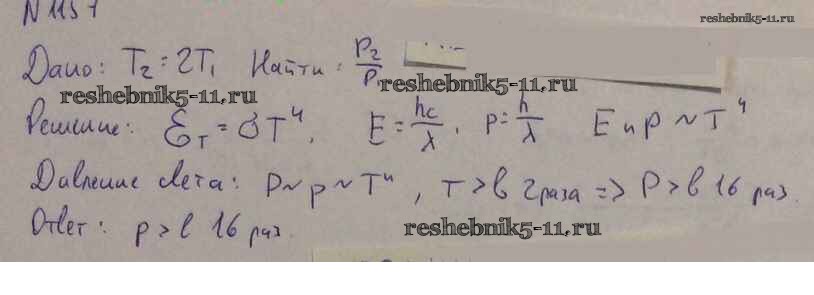 N 1157
reshebnik5-11.ru
Дано: T₂ = 2T₁ Найти: P₂/P₁
reshebnik5-11.ru reshebnik5-11.ru
Решение: ℰ_T = σT⁴, E = hc/λ, p = h/λ E и p ~ T⁴
Давление света: P ~ p ~ T⁴, T > в 2 раза => P > в 16 раз.
Ответ: p > в 16 раз.
reshebnik5-11.ru